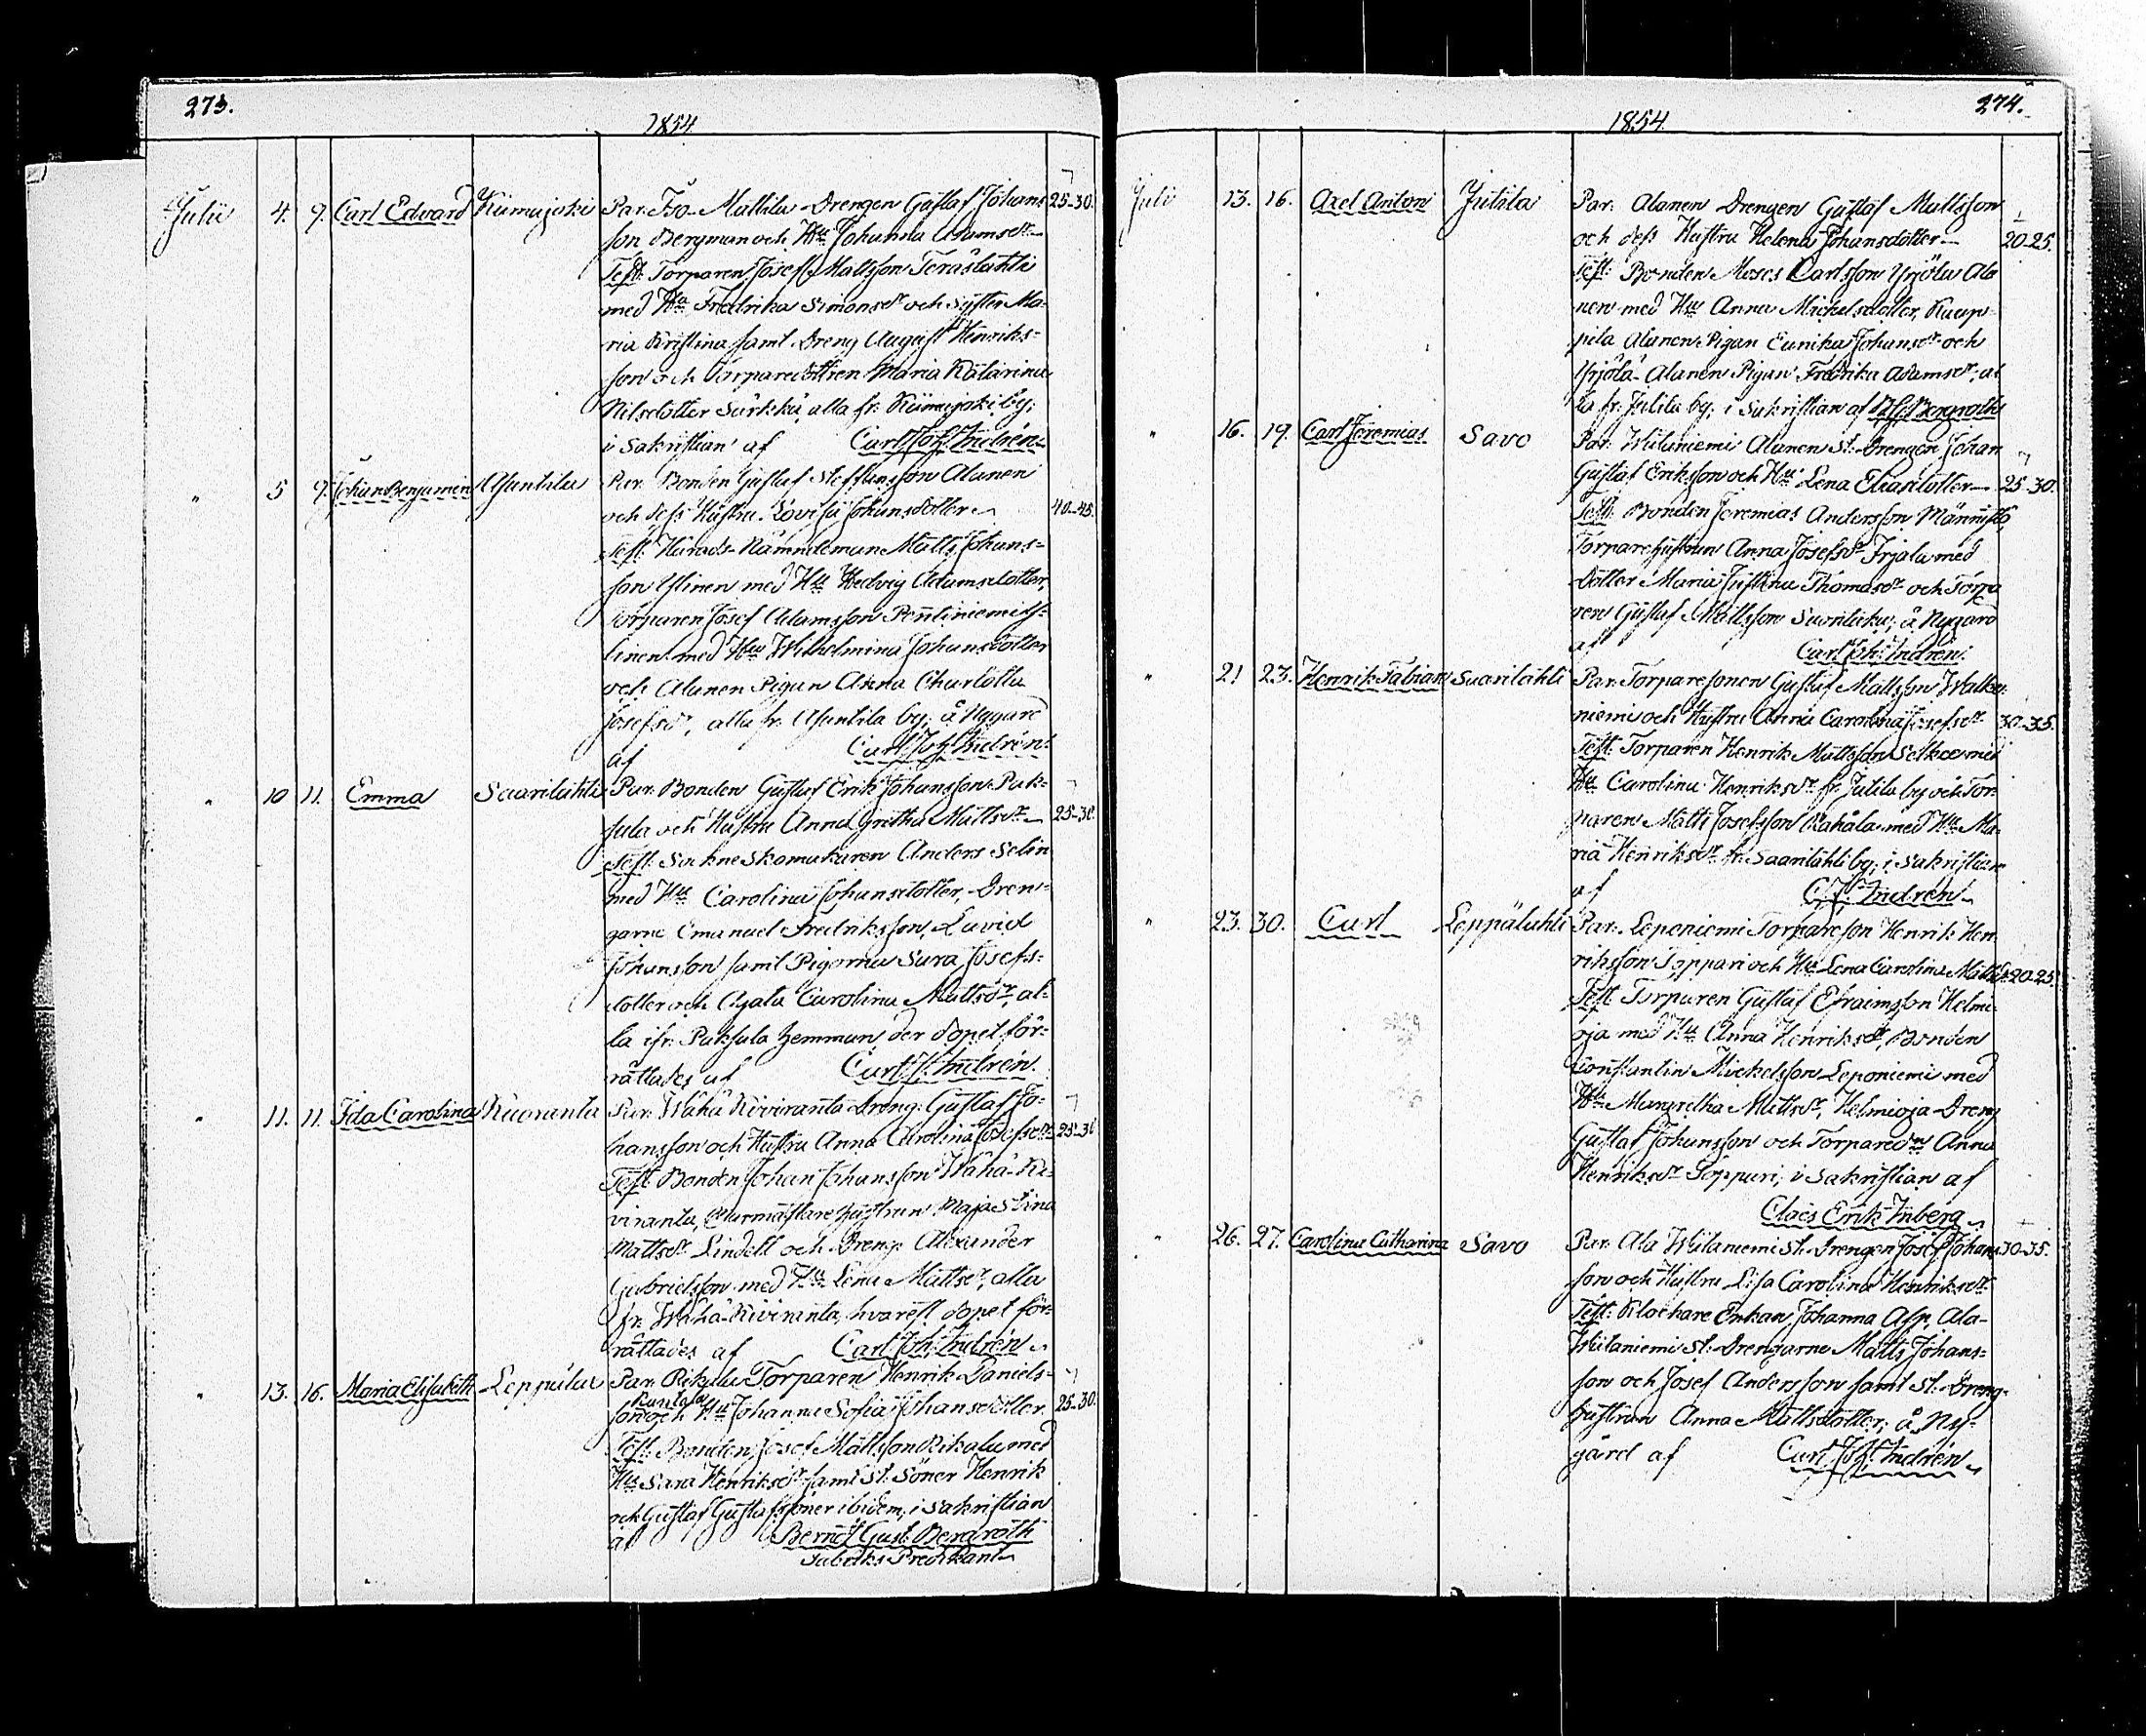 273.
1854
Julii 4. 9. Carl Edvard Kiimajoki Par. Iso-Mattila Drengen Gustaf Johans- 25-30.
son Bergman och Hu Johanna Adamsdr
Test: Torparen Josef Mattsson Teräslahti
med Hu Fredrika Simonsdr och syster Ma-
ria Kristina samt Dreng August Henriks-
son och Torparedottren Maria Katarina
Nilsdotter Särkkä, alla fr. Kiimajoki by;
i Sakristian af Carl Joh. Indrén
" 5 9. Johan Benjamin Asuntila Par. Bonden Gustaf Steffansson Alanen
och dess Hustru Lovisa Johansdotter 40-45.
Test. Härads-Nämndeman Matts Johans-
son Ylinen med Hu Hedvig Adamsdotter,
Torparen Josef Adamsson Penttiniemi Y-
linen med Hu Wilhelmina Johansdotter
och Alanen Pigan Anna Charlotta
Josefsdr, alla fr. Asuntila by; å Nygård
af Carl Joh. Indrén
" 10 11. Emma Saarilahti Par. Bonden Gustaf Erik Johansson Pak-
sula och Hustru Anna Gretha Mattsdr 25-30.
Test. Sockneskomakaren Anders Selin
med Hu Carolina Johansdotter, Dren-
garne Emanuel Fredriksson, David
Johansson samt Pigorna Sara Josefs-
dotter och Agata Carolina Mattsdr, al-
la ifr. Paksula hemman, der dopet för-
rättades af Carl J. Indrén
" 11. 11. Ida Carolina Kuoranta Par. Wähä Kiviranta Dreng. Gustaf Jo-
hansson och Hustru Anna Carolina Josefsdr 25-30
Test. Bonden Johan Johansson Wähä-Ki-
viranta, Murmästare hustrun Maja Stina
Mattsdr Lindell och Dreng Alexander
Gabrielsson med Hu Lena Mattsdr, alla
fr. Wähä-Kiviranta, hvarest dopet för-
rättades af Carl Joh. Indrén
" 13. 16. Maria Elisabeth Leppälax Par. Rikala Torparen Henrik Daniels-
Rantala
son och Hu Johanna Sofia Johansdotter 25-30.
Test: Bonden Josef Mattsson Rikala med
Hu Sara Henriksdr samt St. Söner Henrik
och Gustaf Gustafssöner ibidem; i Sakristian
af Berndt Gust. Bergroth
Sabbaths Predikant
274.
1854.
Juli 13. 16. Axel Anton Jutila Par: Alanen Drengen Gustaf Mattsson
och dess Hustru Helena Johansdotter 20-25.
Test: Bonden Moses Carlsson Yrjölä Ala
nen med Hu Anna Michelsdotter, Kaup-
pila Alanen Pigan Eunika Johansdr och
Yrjölä-Alanen Pigan Fredrika Adamsdr, al
la fr. Jutila by; i Sakristian af B. G. Bergroth
" 16. 19. Carl Jeremias Savo Par: Wiitaniemi Alanen St. Drengen Johan
Gustaf Eriksson och Hu Lena Eliasdotter 25-30.
Test: Bonden Jeremias Andersson Männistö,
Torparehustrun Anna Josefsdr Irjala med
dotter Maria Justina Thomasdr och Torpa
ren Gustaf Mattsson Suontieku; å Nygård
af Carl Joh. Indrén
" 21 23. Henrik Fabian Saarilahti Par: Torparesonen Gustaf Mattsson Walka-
niemi och Hustru Anna Carolina Josefsdr 30-35.
Test: Torparen Henrik Mattsson Selkee med
Hu Carolina Henriksdr fr. Jutila by och Tor-
paren Matti Josefsson Rahala med Hu Ma-
ria Henriksdr fr. Saarilahti by; i Sakristian
af C. J. Indrén
" 23. 30. Carl Leppälahti Par. Leponiemi Torpareson Henrik Hen
riksson Toppari och Hu Lena Carolina Mattsdr 20-25.
Test. Torparen Gustaf Efraimsson Helmi-
oja med Hu Anna Henriksdr, Bonden
Constantin Mickelsson Leponiemi med
Hu Margretha Mattsdr, Helmioja Dreng
Gustaf Johansson och Torparedn Anna
Henriksdr Toppari; i Sakristian af
Claes Erik Inberg
" 26. 27. Carolina Catharina Savo Par. Ala Wiitaniemi St. Drengen Josef Johans 30-35.
son och Hustru Lisa Carolina Henriksdr
Test: Klockare Enkan Johanna Asp, Ala-
Wiitaniemi St. Drengarne Matts Johans-
son och Josef Andersson samt St. Dreng-
hustrun Anna Mattsdotter; å Ny-
gård af Carl Joh. Indrén